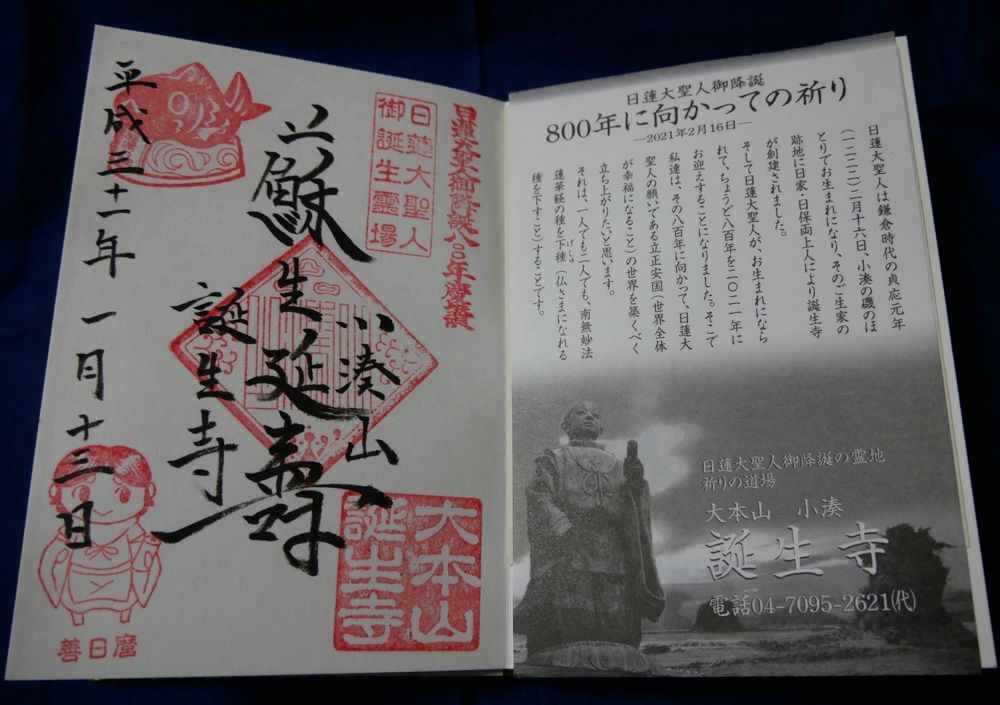 日蓮大聖人御降誕八〇〇年慶讃
日蓮大聖人
御誕生霊場
小湊山
蘇生延壽
誕生寺
平成三十一年一月十三日
大本山
誕生寺
善日麿
日蓮大聖人御降誕
800年に向かっての祈り
―2021年2月16日―
日蓮大聖人は鎌倉時代の貞応元年
(一二二二)二月十六日、小湊の磯のほ
とりでお生まれになり、そのご生家の
跡地に日家・日保両上人により誕生寺
が創建されました。
そして日蓮大聖人が、お生まれになら
れて、ちょうど八百年を二〇二一年に
お迎えすることになりました。そこで
私達は、その八百年に向かって、日蓮大
聖人の願いである立正安国(世界全体
が幸福になること)の世界を築くべく
立ち上がりたいと思います。
それは、一人でも二人でも、南無妙法
蓮華経の種を下種(仏さまになれる
げしゅ
種を下すこと)することです。
日蓮大聖人御降誕の霊地
祈りの道場
大本山 小湊
誕生寺
電話04-7095-2621(代)